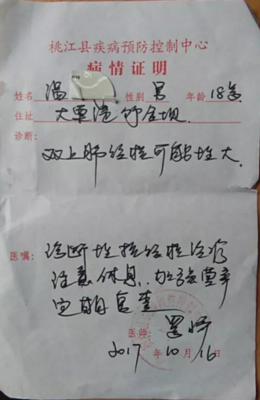 桃江县疾病预防控制中心
病情证明
姓名 温 性别 男 年龄 18岁
住址 大栗港
诊断:
双上肺结核可能性大
医嘱: 诊断性抗结核治疗
注意休息,加强营养
定期复查
医师:
2017年10月16日